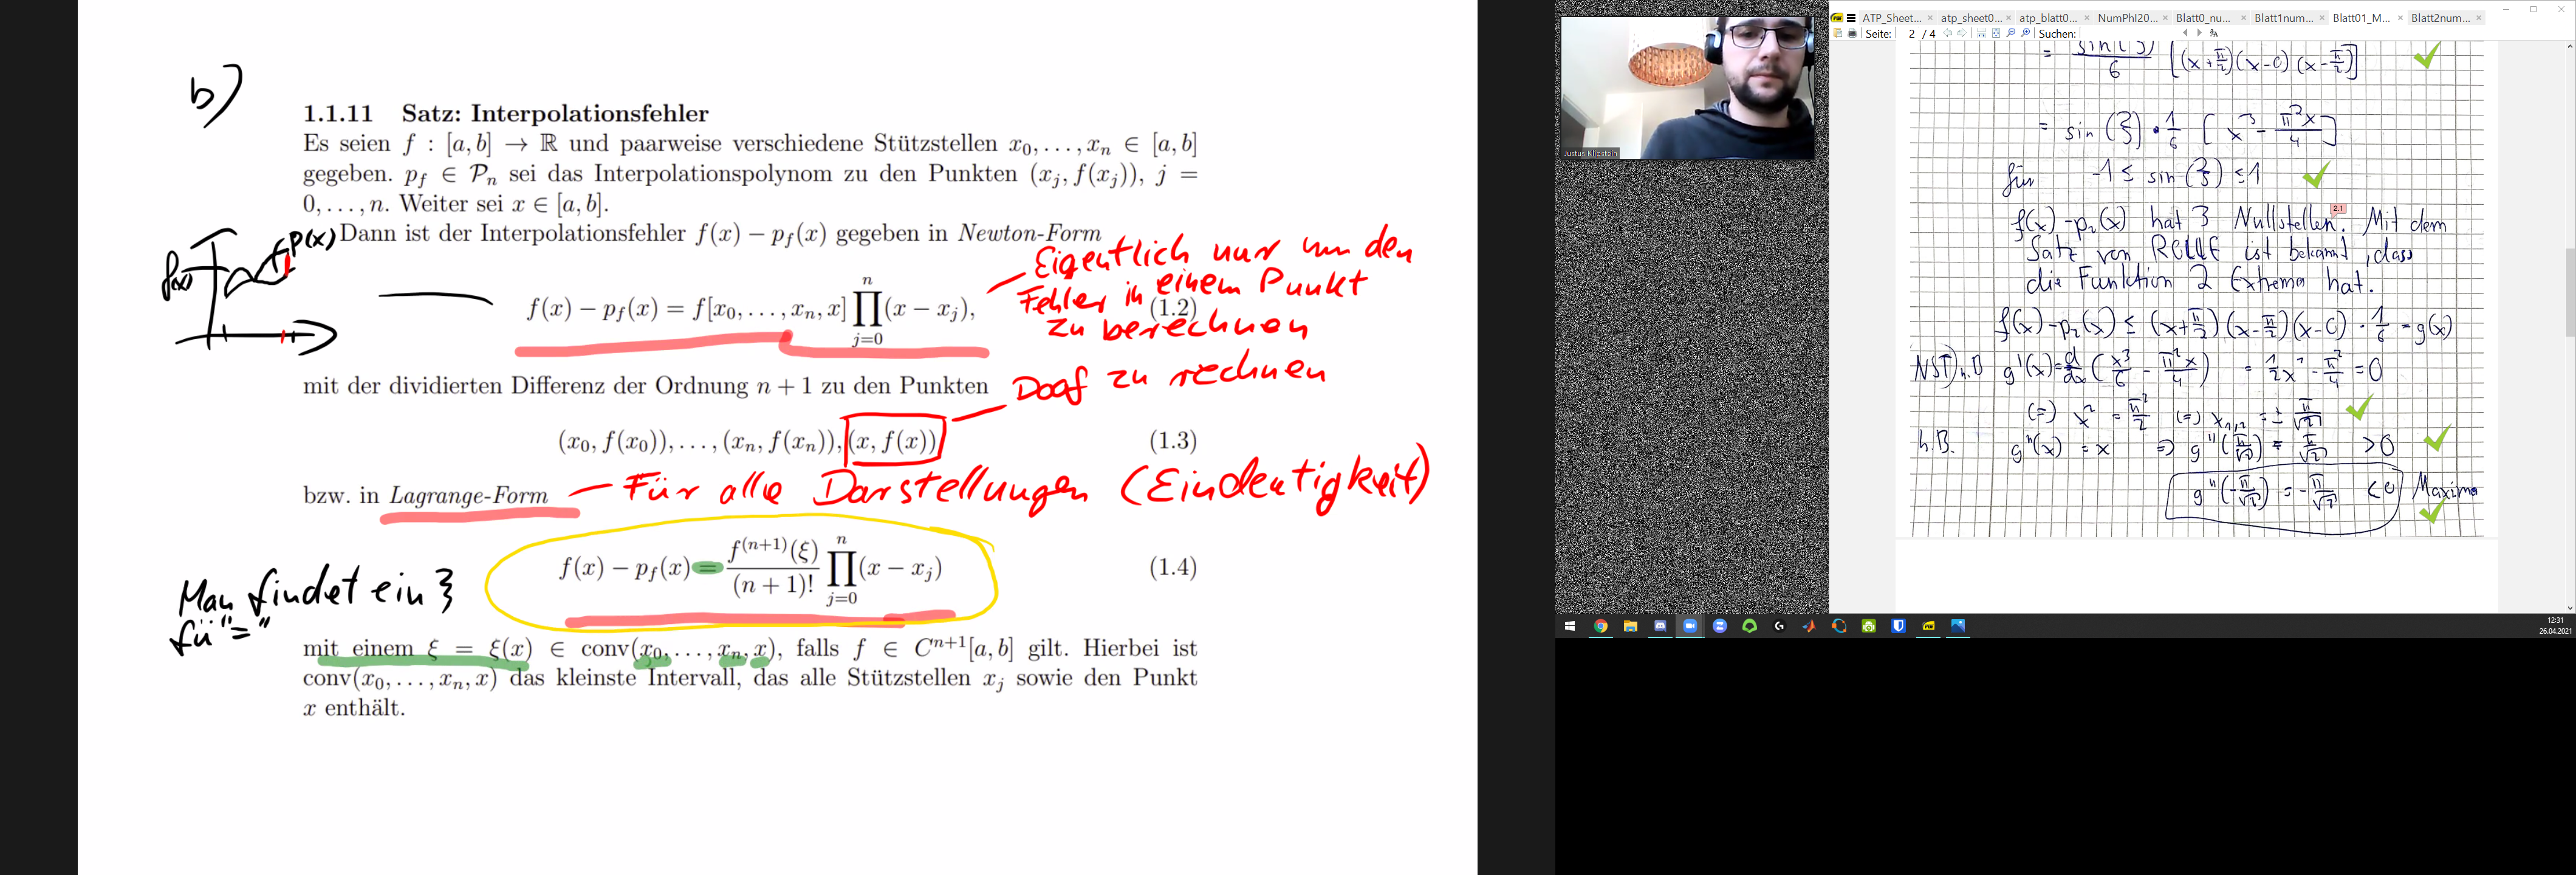 b)
1.1.11 Satz: Interpolationsfehler
Es seien f : [a, b] → ℝ und paarweise verschiedene Stützstellen x₀, . . . , xₙ ∈ [a, b]
gegeben. p_f ∈ 𝒫ₙ sei das Interpolationspolynom zu den Punkten (xⱼ, f(xⱼ)), j =
0, . . . , n. Weiter sei x ∈ [a, b].
Dann ist der Interpolationsfehler f(x) − p_f(x) gegeben in Newton-Form
p(x)
f(x)
f(x) − p_f(x) = f[x₀, . . . , xₙ, x] ∏ⱼ₌₀ⁿ (x − xⱼ), (1.2)
Eigentlich nur um den
Fehler in einem Punkt
zu berechnen
mit der dividierten Differenz der Ordnung n + 1 zu den Punkten
Doof zu rechnen
(x₀, f(x₀)), . . . , (xₙ, f(xₙ)), (x, f(x)) (1.3)
bzw. in Lagrange-Form
Für alle Darstellungen (Eindeutigkeit)
f(x) − p_f(x) = f⁽ⁿ⁺¹⁾(ξ)/(n + 1)! ∏ⱼ₌₀ⁿ (x − xⱼ) (1.4)
Man findet ein ξ
fü "="
mit einem ξ = ξ(x) ∈ conv(x₀, . . . , xₙ, x), falls f ∈ Cⁿ⁺¹[a, b] gilt. Hierbei ist
conv(x₀, . . . , xₙ, x) das kleinste Intervall, das alle Stützstellen xⱼ sowie den Punkt
x enthält.
Justus Klipstein
ATP_Sheet... atp_sheet0... atp_blatt0... NumPhI20... Blatt0_nu... Blatt1num... Blatt01_M... Blatt2num...
Seite: 2 / 4 Suchen:
= sin(ξ)/6 [(x+π/2)(x−0)(x−π/2)]
= sin(ξ) · 1/6 [x³ − π²x/4]
für −1 ≤ sin(ξ) ≤ 1
2.1
f(x)−p₂(x) hat 3 Nullstellen. Mit dem
Satz von ROLLE ist bekannt, dass
die Funktion 2 Extrema hat.
f(x)−p₂(x) ≤ (x+π/2)(x−π/2)(x−0) · 1/6 = g(x)
NST n.B g'(x)= d/dx (x³/6 − π²x/4) = 1/2x² − π²/4 = 0
(=) x² = π²/2 (=) x₁,₂ = ± π/√2
h.B. g''(x) = x => g''(π/√2) = π/√2 >0
g''(−π/√2) = −π/√2 <0 Maxima
12:31
26.04.2021